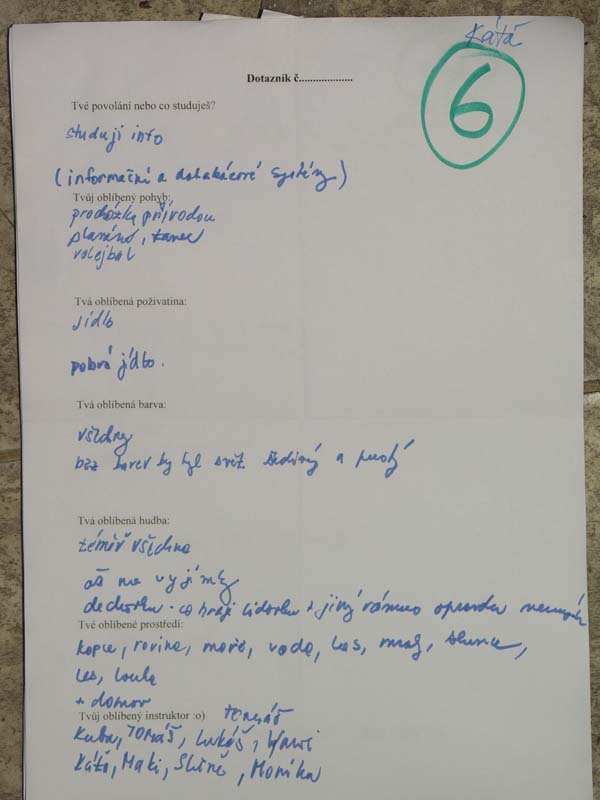 Kátá
Dotazník č...................
6
Tvé povolání nebo co studuješ?
studuji info
(informační a databázové systémy)
Tvůj oblíbený pohyb:
procházka přírodou
plavání, tanec
volejbal
Tvá oblíbená poživatina:
jídlo
dobré jídlo.
Tvá oblíbená barva:
všechny
bez barev by byl svět šedivý a pustý
Tvá oblíbená hudba:
téměř všechna
až na vyjímky
dechovku - co hrají lidovku + jiný opravdu
Tvé oblíbené prostředí:
kopce, rovina, moře, voda, les, mraky, slunce,
les, louka
+ domov
Tvůj oblíbený instruktor :o) Tomáš
Kuba, Tomáš, Lukáš,
Káťa, Maki, Monika